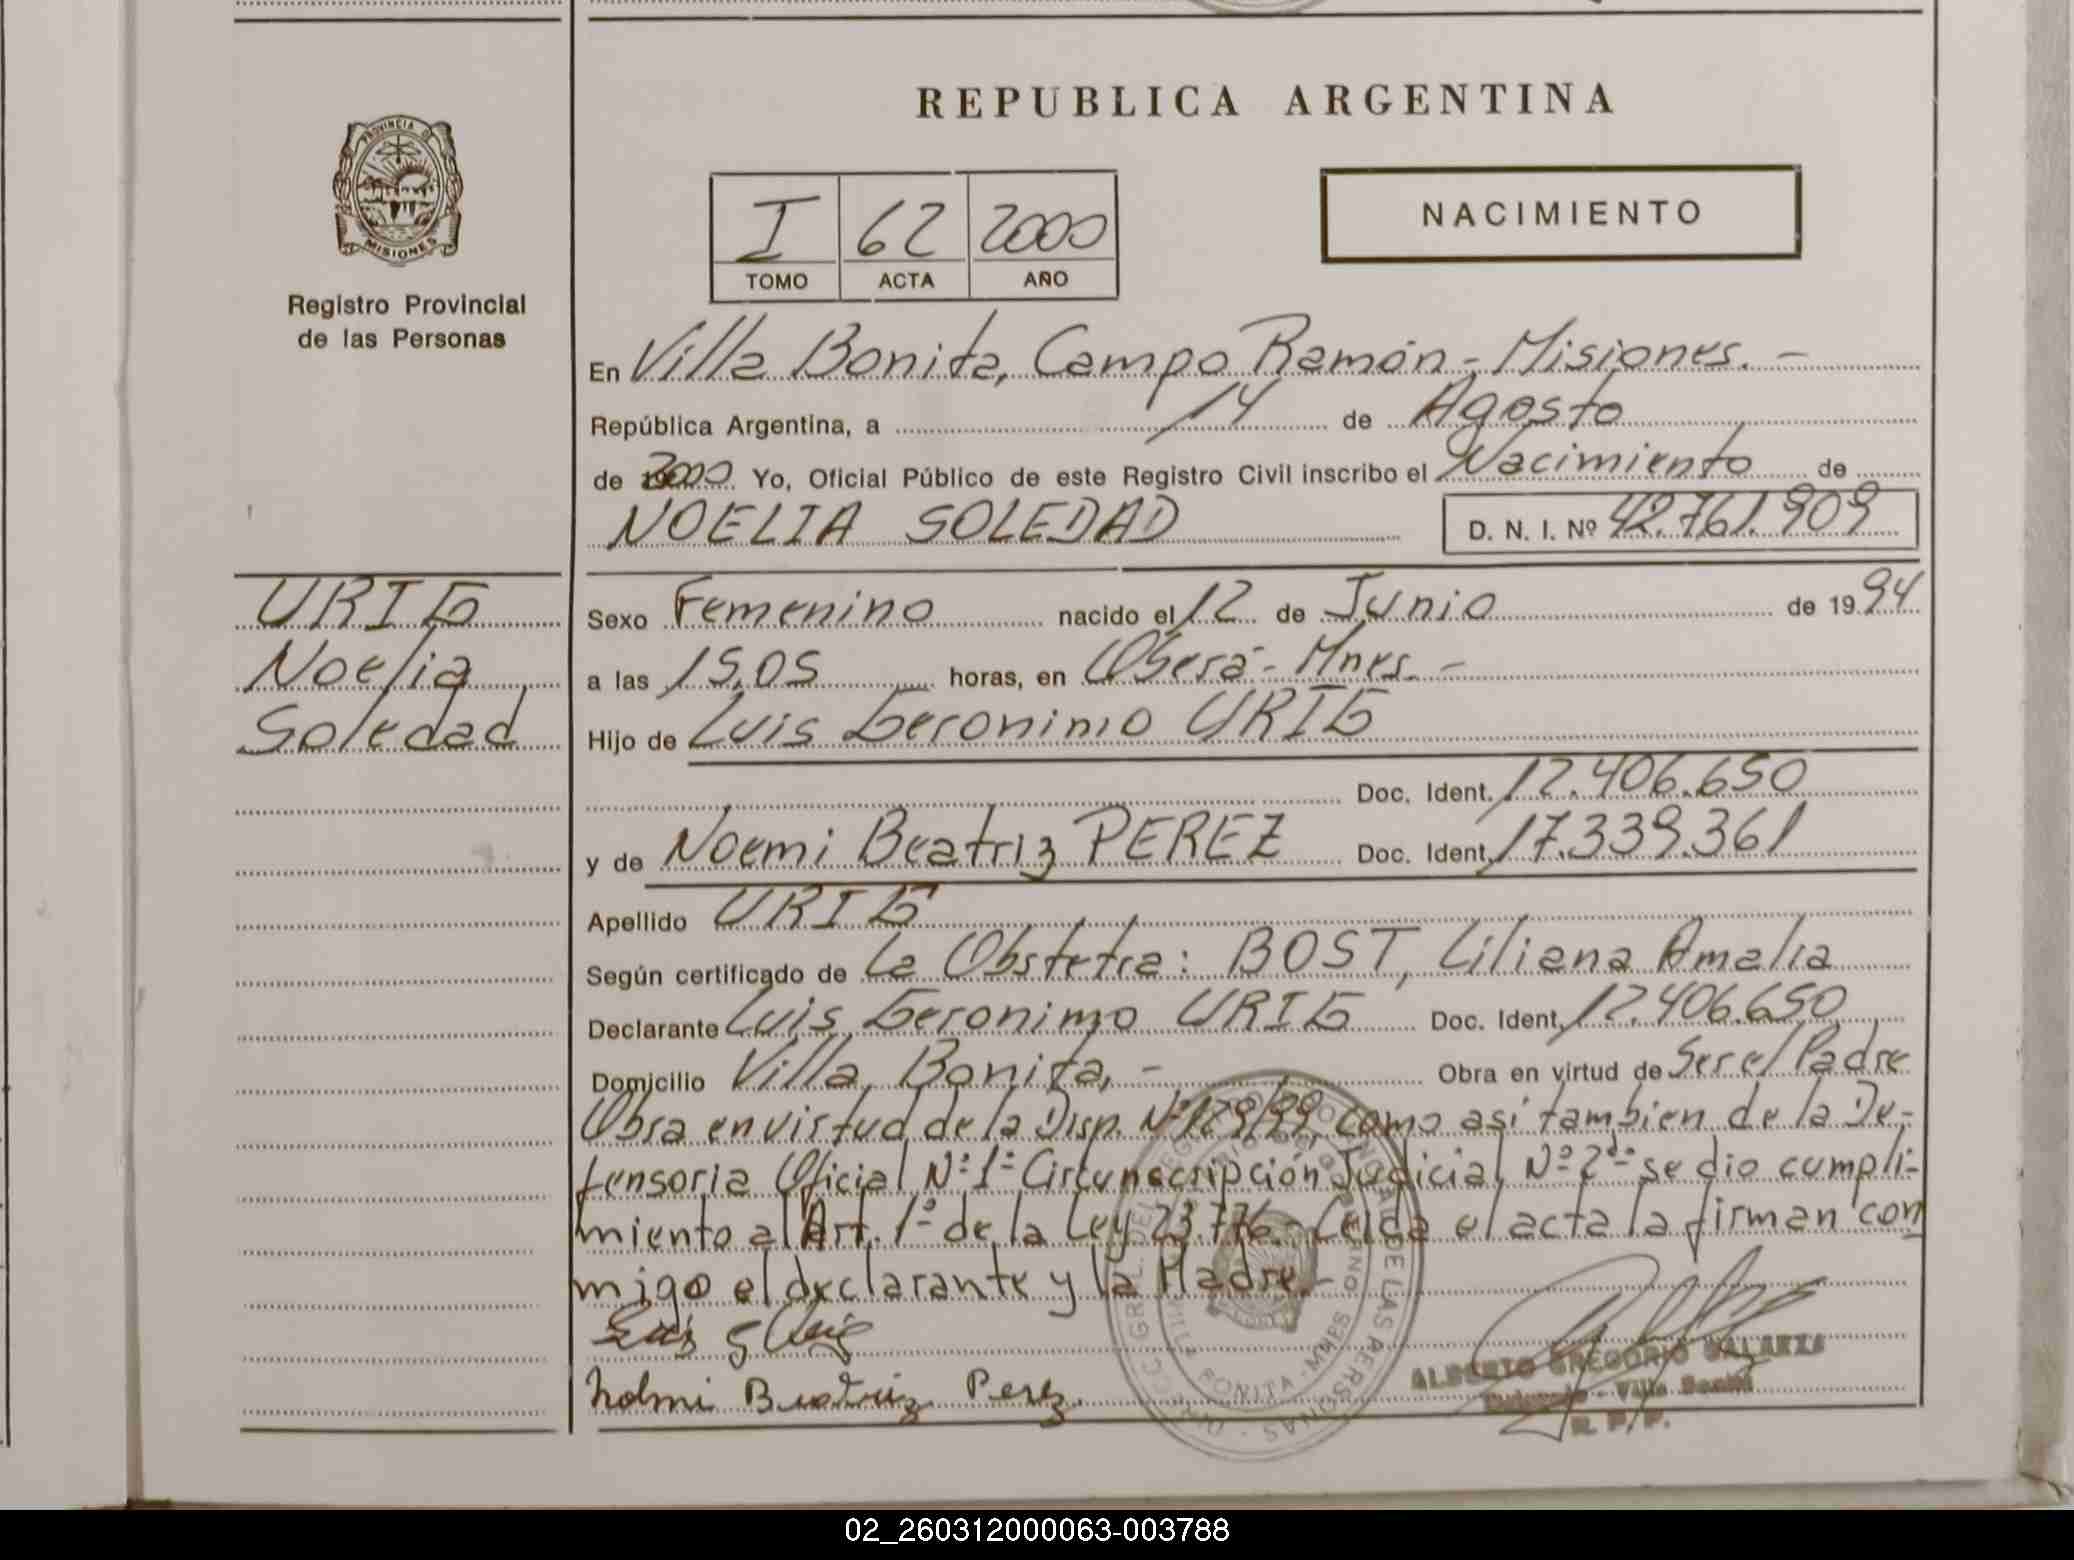 REPUBLICA ARGENTINA
PROVINCIA D
MISIONES
Registro Provincial
de las Personas
NACIMIENTO
I 62 2000
TOMO ACTA AÑO
En Villa Bonita, Campo Ramón - Misiones. -
República Argentina, a 14 de Agosto
de 2000 Yo, Oficial Público de este Registro Civil inscribo el Nacimiento de
NOELIA SOLEDAD D. N. I. Nº 42.761.909
URIG
Noelia
Soledad
Sexo Femenino nacido el 12 de Junio de 1994
a las 15,05 horas, en Oberá - Mnes. -
Hijo de Luis Geronimo URIG
Doc. Ident. 12.406.650
y de Noemi Beatriz PEREZ Doc. Ident. 17.339.361
Apellido URIG
Según certificado de La Obstetra: BOST, Liliana Amalia
Declarante Luis Geronimo URIG Doc. Ident. 12.406.650
Domicilio Villa Bonita, - Obra en virtud de Ser el Padre
Obra en virtud de la Disp. Nº 129/99, como asi tambien de la De-
fensoria Oficial Nº 1º Circunscripción Judicial Nº 2da se dio cumpli-
miento al Art. 1º de la Ley 23.776.- Leida el acta la firman con
migo el declarante y la Madre.-
Noemi Beatriz Perez
DE LAS PERSONAS
VILLA BONITA - MNES
ALBERTO GREGORIO GALARZA
Villa Bonita
R. P. P.
02_260312000063-003788